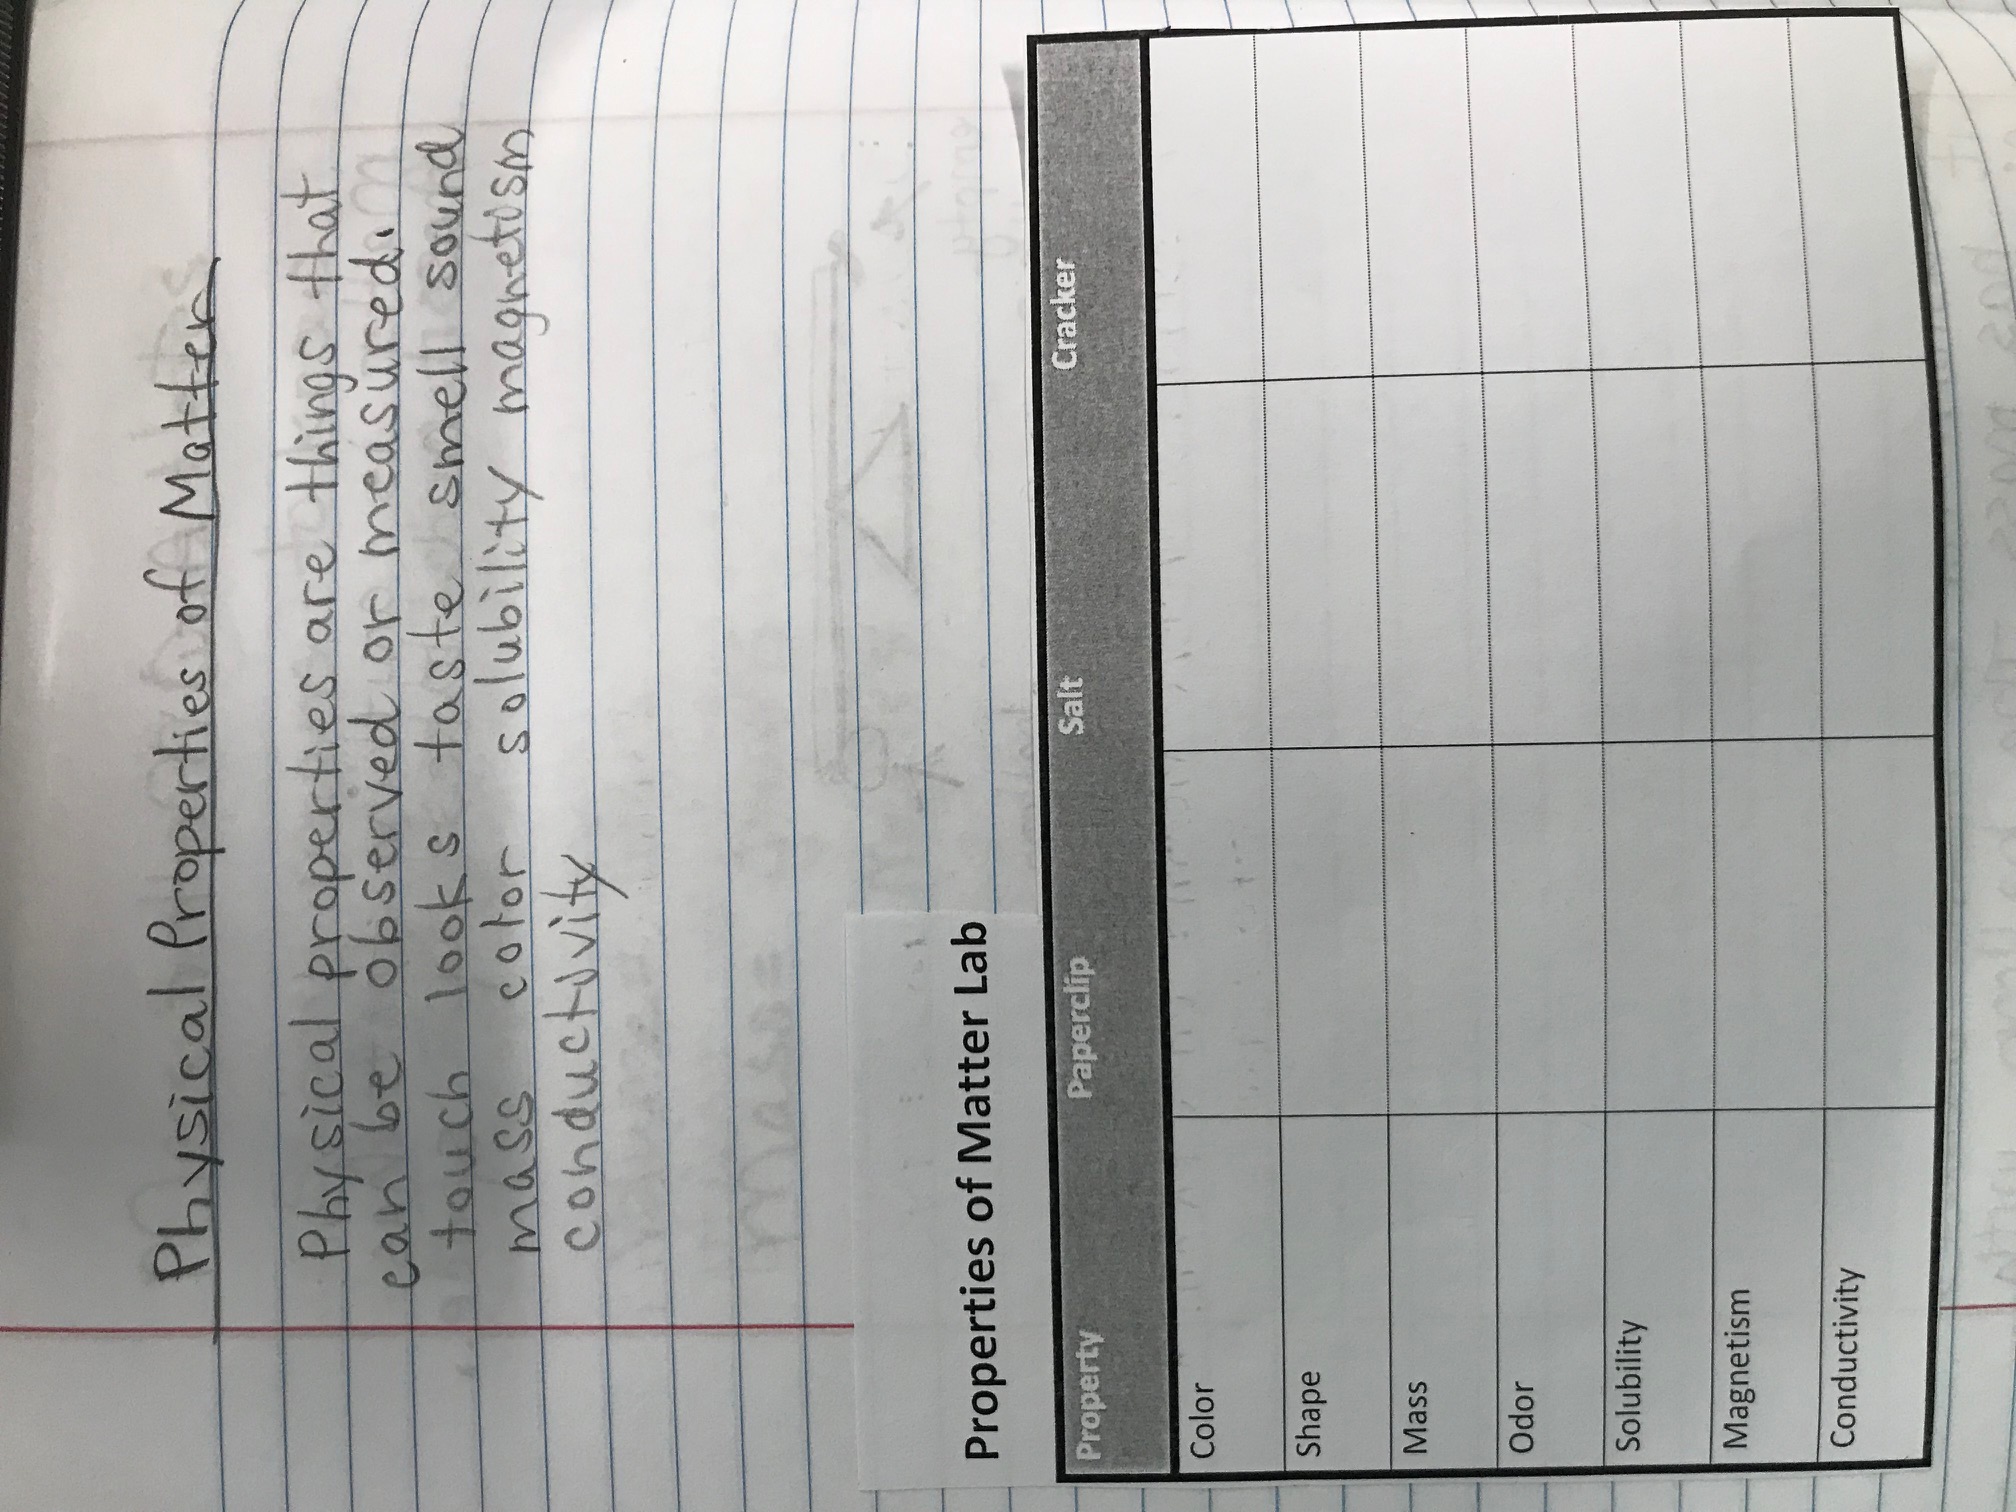 Physical Properties of Matter
Physical properties are things that
can be observed or measured.
touch looks taste smell sound
mass color solubility magnetism
conductivity
Properties of Matter Lab
Property Paperclip Salt Cracker
Color
Shape
Mass
Odor
Solubility
Magnetism
Conductivity